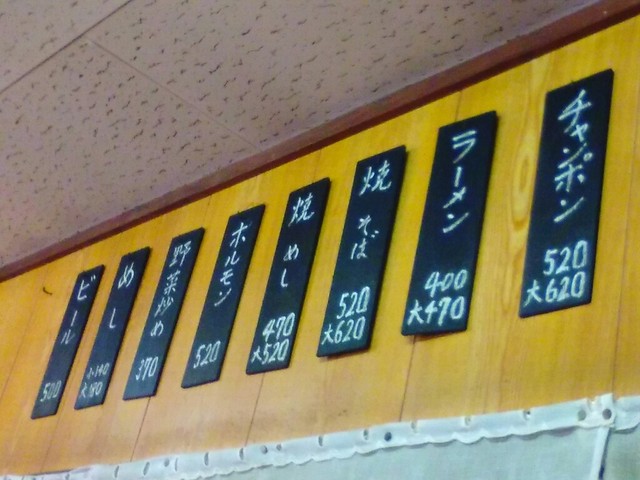 チャンポン
520
大620
ラーメン
400
大470
焼そば
520
大620
焼めし
470
大520
ホルモン
520
野菜炒め
370
めし
小140
大180
ビール
500